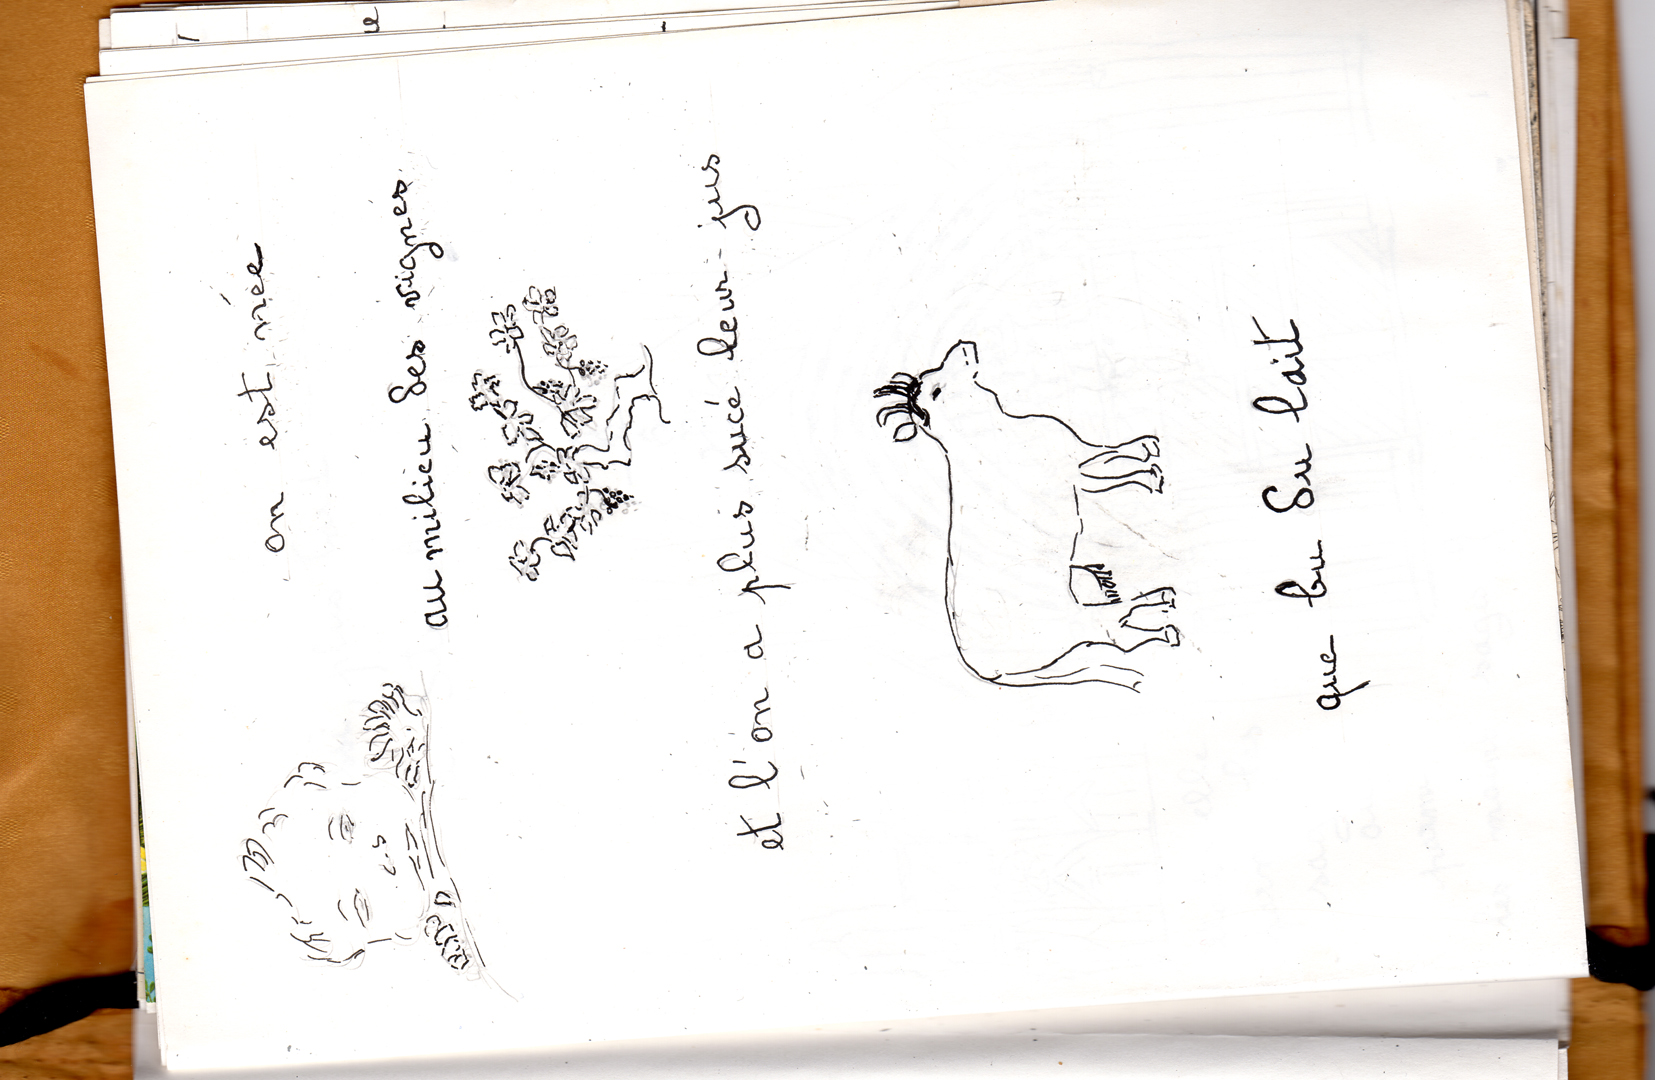 on est née
au milieu des vignes
et l'on a plus sucé leur jus
que bu du lait